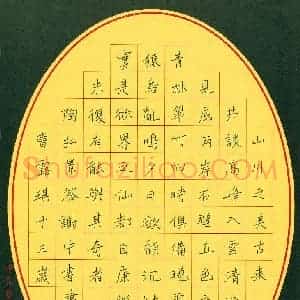 山川之美古來
共談高峰入雲清
見底兩岸石壁五色
青林翠竹四時俱備曉
猿鳥亂鳴夕日欲頹沉
實是欲界之仙都自康
未復有能與其奇者
陶弘景答謝中書
露琪十三歲
Shufaziliao.com